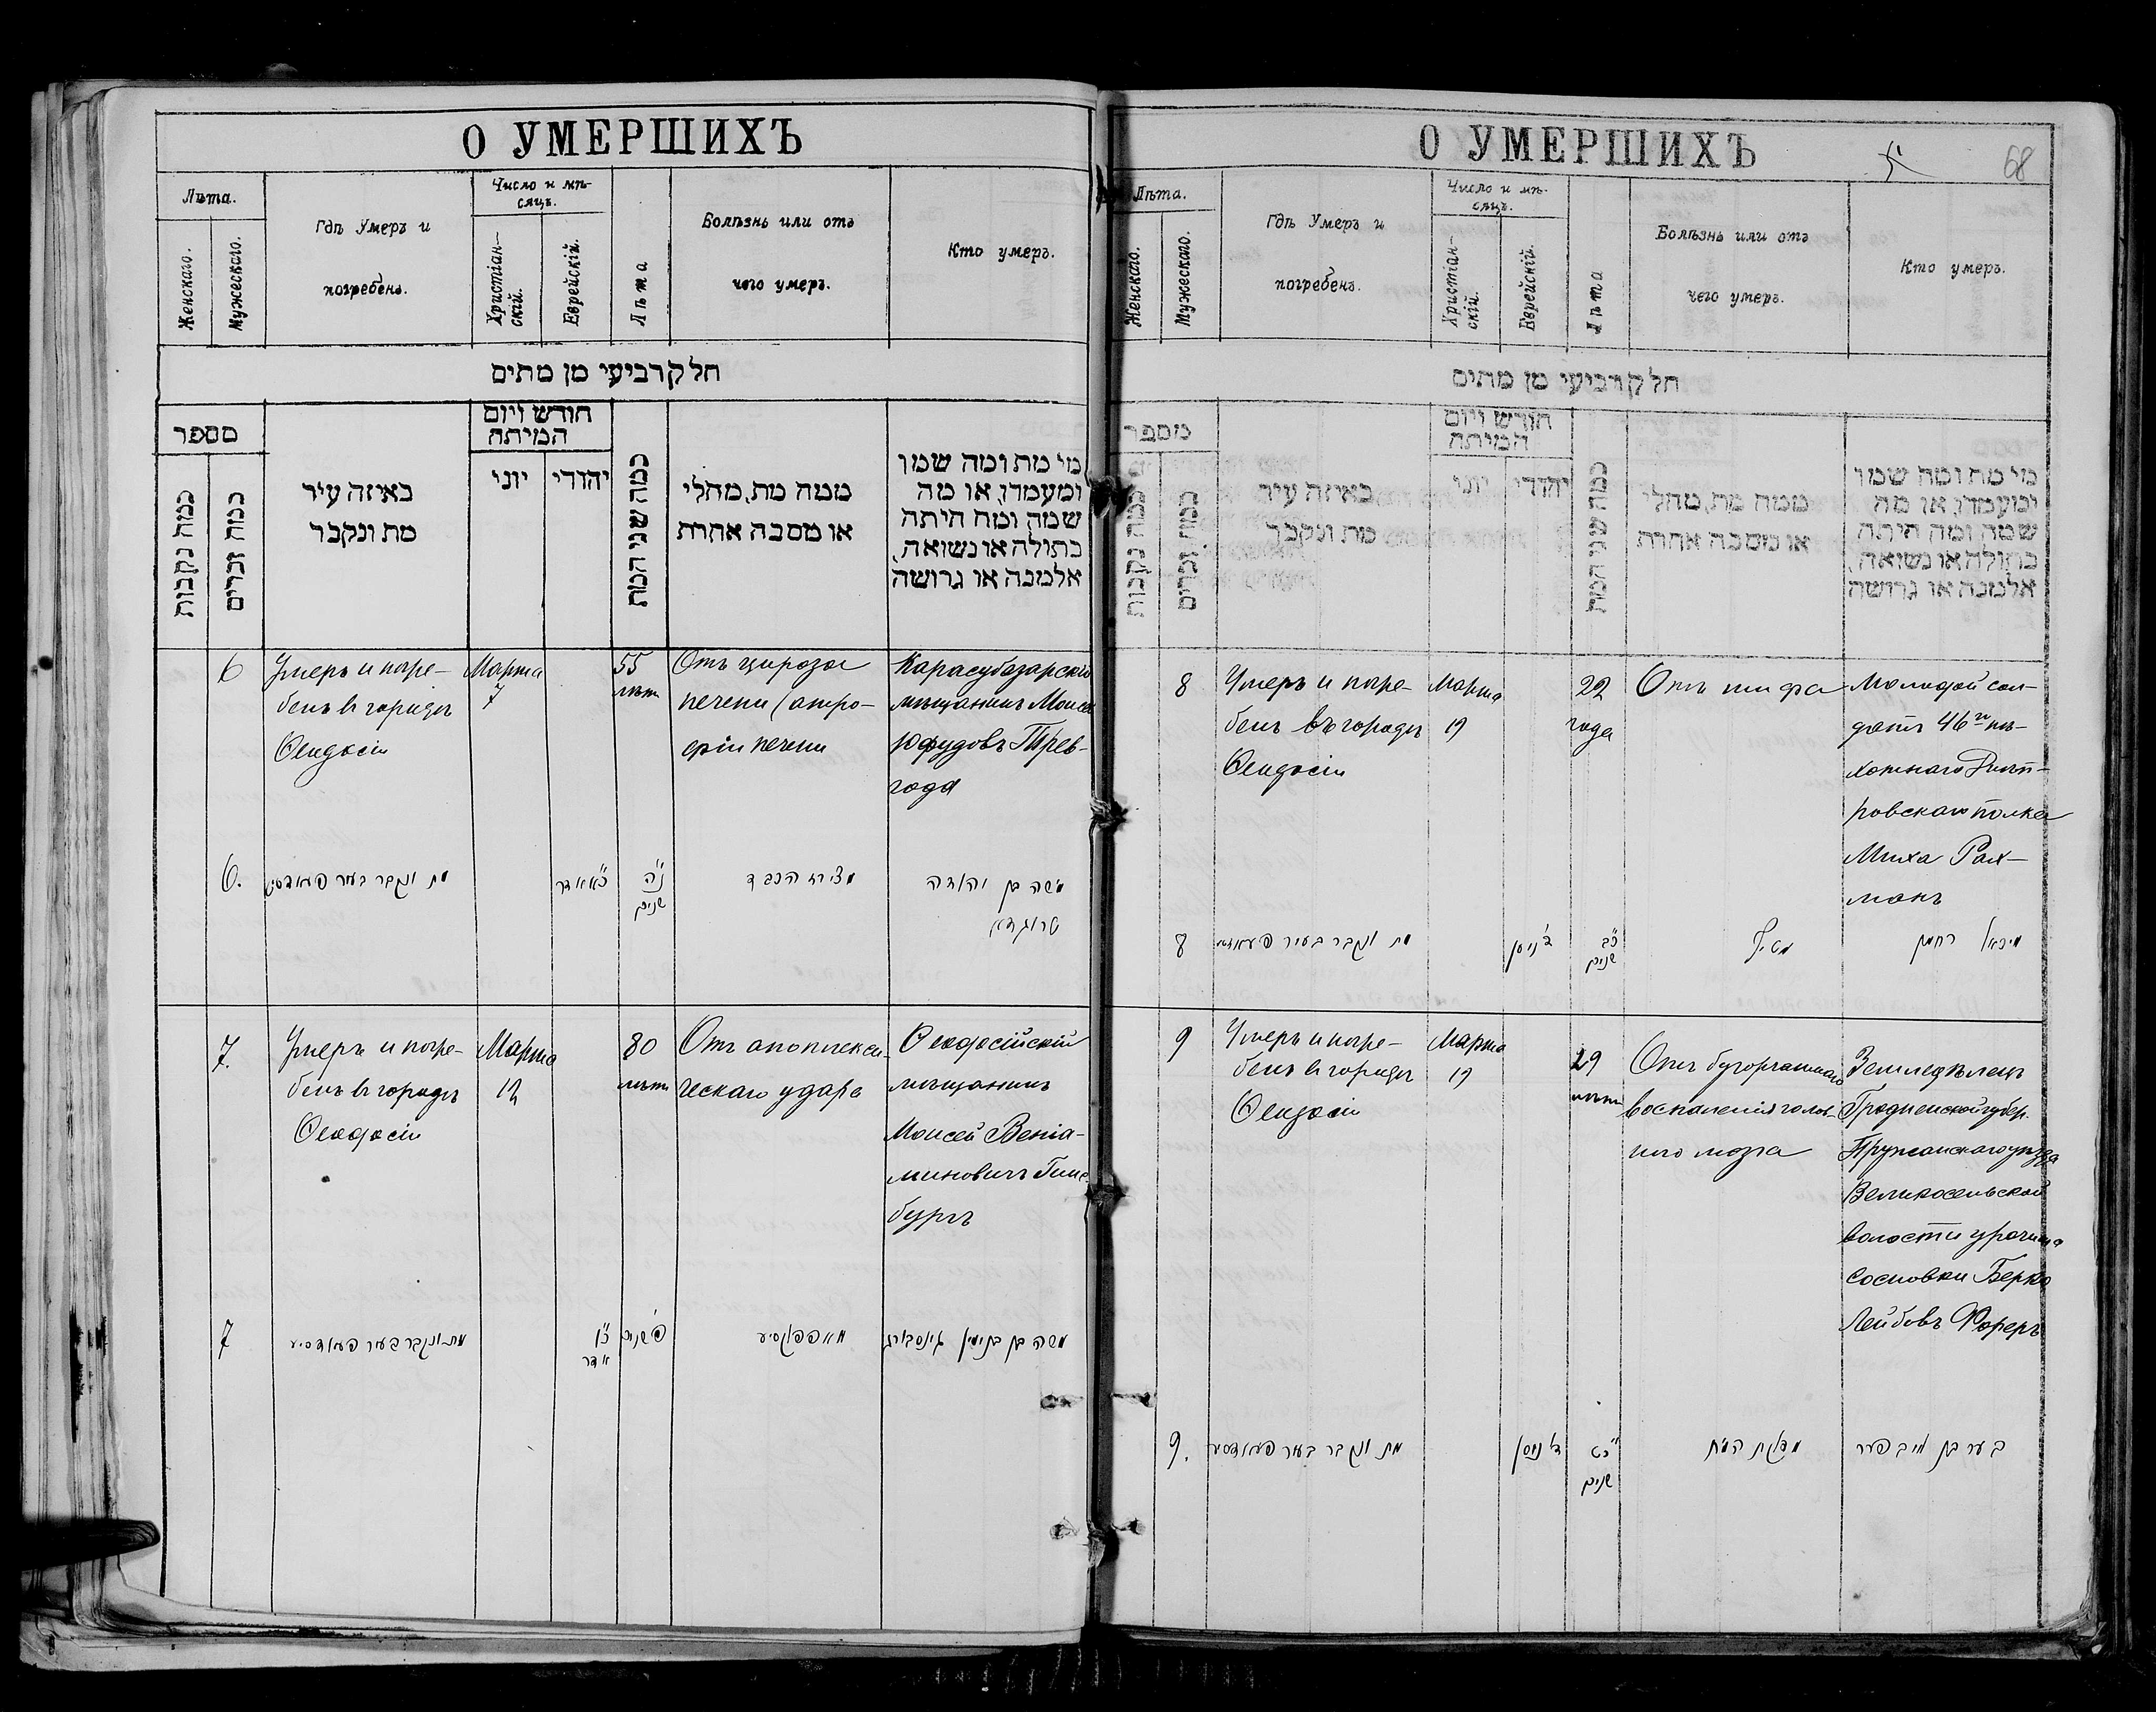 О УМЕРШИХЪ
Лѣта.
Женскаго.
Мужескаго.
Гдѣ Умеръ и
погребенъ.
Число и мѣ-
сяцъ.
Христіан-
скій.
Еврейскій.
Лѣта
Болѣзнь или отъ
чего умеръ.
Кто умеръ.
חלק רביעי מן מתים
מספר
כמה נקבות
כמה זכרים
באיזה עיר
מת ונקבר
חודש ויום
המיתה
יוני
יהודי
כמה שני המת
ממה מת, מחלי
או מסבה אחרת
מי מת ומה שמו
ומעמדו, או מה
שמה ומה היתה
בתולה או נשואה,
אלמנה או גרושה
6
Умеръ и погре-
бенъ въ городѣ
Ѳеодосіи
Марта
7
55
лѣтъ
Отъ цироза
печени (атро-
фіи печени
Карасубазарскій
мѣщанинъ Моисей
Юфудовъ
года
6.
מת ונקבר בעיר פעאדסיע
כ״א אדר
נ״ה
שנים
הכבד
משה בן יהודה
7.
Умеръ и погре-
бенъ въ городѣ
Ѳеодосіи
Марта
12
80
лѣтъ
Отъ апоплекси-
ческаго удара
Ѳеодосійскій
мѣщанинъ
Моисей Веніа-
миновичъ Гинс
бургъ
7
מת ונקבר בעיר פעאדסיע
כ״ו
אדר
פ׳ שנים
משה בן בנימין גינסבורג
О УМЕРШИХЪ
68
Лѣта.
Женскаго.
Мужескаго.
Гдѣ Умеръ и
погребенъ.
Число и мѣ-
сяцъ.
Христіан-
скій.
Еврейскій.
Лѣта
Болѣзнь или отъ
чего умеръ.
Кто умеръ.
חלק רביעי מן מתים
מספר
כמה נקבות
כמה זכרים
באיזה עיר
מת ונקבר
חודש ויום
המיתה
יוני
יהודי
כמה שני המת
ממה מת, מחלי
או מסבה אחרת
מי מת ומה שמו
ומעמדו, או מה
שמה ומה היתה
בתולה או נשואה,
אלמנה או גרושה
8
Умеръ и погре-
бенъ въ городѣ
Ѳеодосіи
Марта
19
22
года
Отъ тифа
Молодой сол-
датъ 46го пѣ-
хотнаго Днѣп-
ровскаго полка
Миха Рах-
манъ
8
מת ונקבר בעיר פעאדסיע
ד׳ ניסן
כ״ב
שנים
מטיף
מיכאל רחמן
9
Умеръ и погре-
бенъ въ городѣ
Ѳеодосіи
Марта
19
29
лѣтъ
Отъ бугорчатаго
воспаленія голов-
ного мозга
Земледѣлецъ
Гродненской губер.
Пружанскаго уѣзда
Великосельской
волости урочища
Сосновки Берко
Лейбовъ Фореръ
9.
מת ונקבר בעיר פעאדסיע
ד׳ ניסן
כ״ט
שנים
מדלקת המוח
בער בן לייב פערער